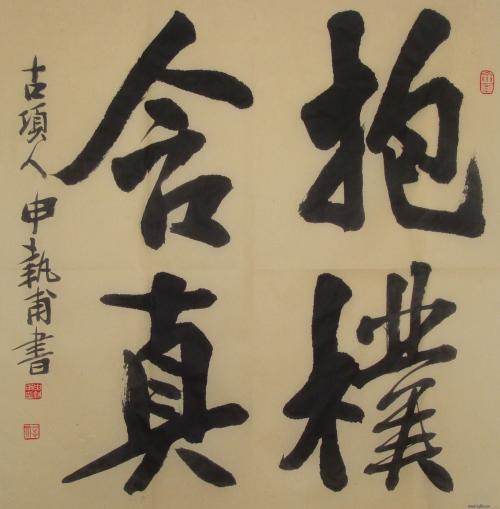 抱樸
含真
古項人申執甫書